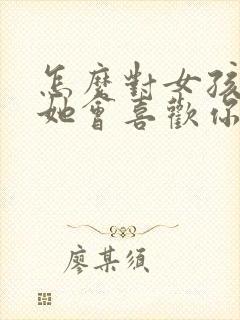 怎麼對女孩
她會喜歡你
廖某須